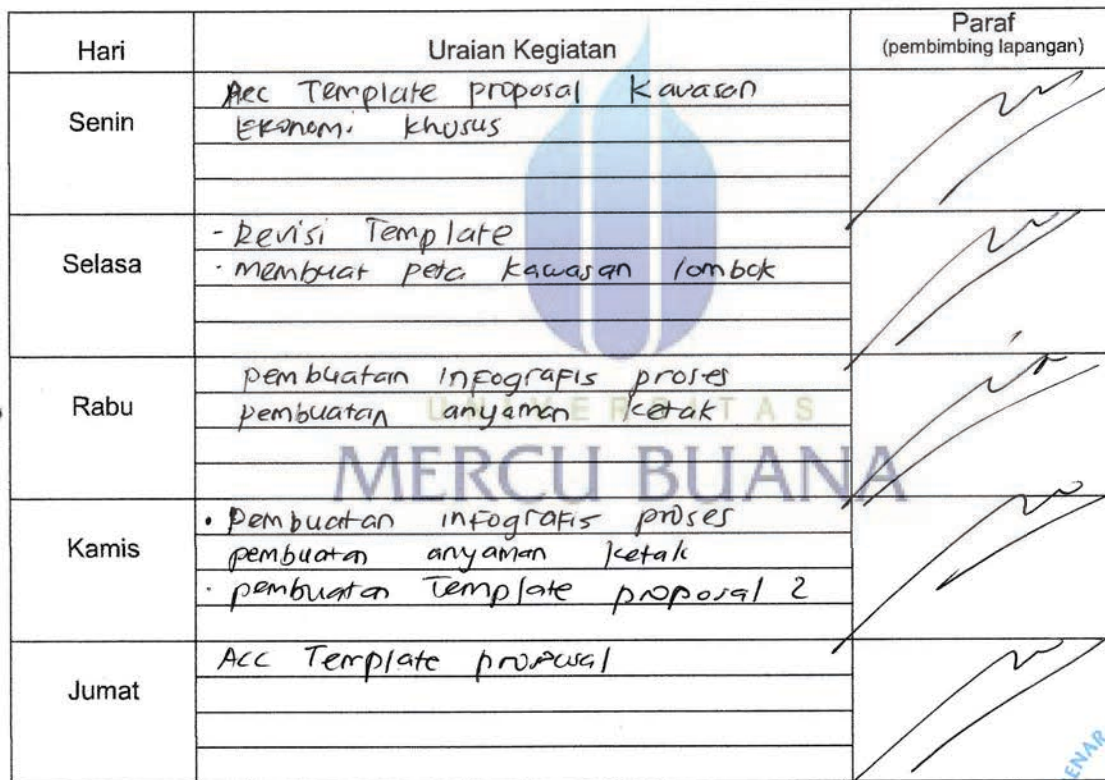 Hari Uraian Kegiatan Paraf
(pembimbing lapangan)
Senin
Acc Template proposal Kawasan
Ekonomi Khusus
Selasa
- Revisi Template
- membuat peta kawasan lombok
Rabu
pembuatan infografis proses
pembuatan anyaman ketak
UNIVERSITAS
MERCU BUANA
Kamis
• Pembuatan infografis proses
pembuatan anyaman ketak
• pembuatan Template proposal 2
Jumat
ACC Template proposal
ENAR